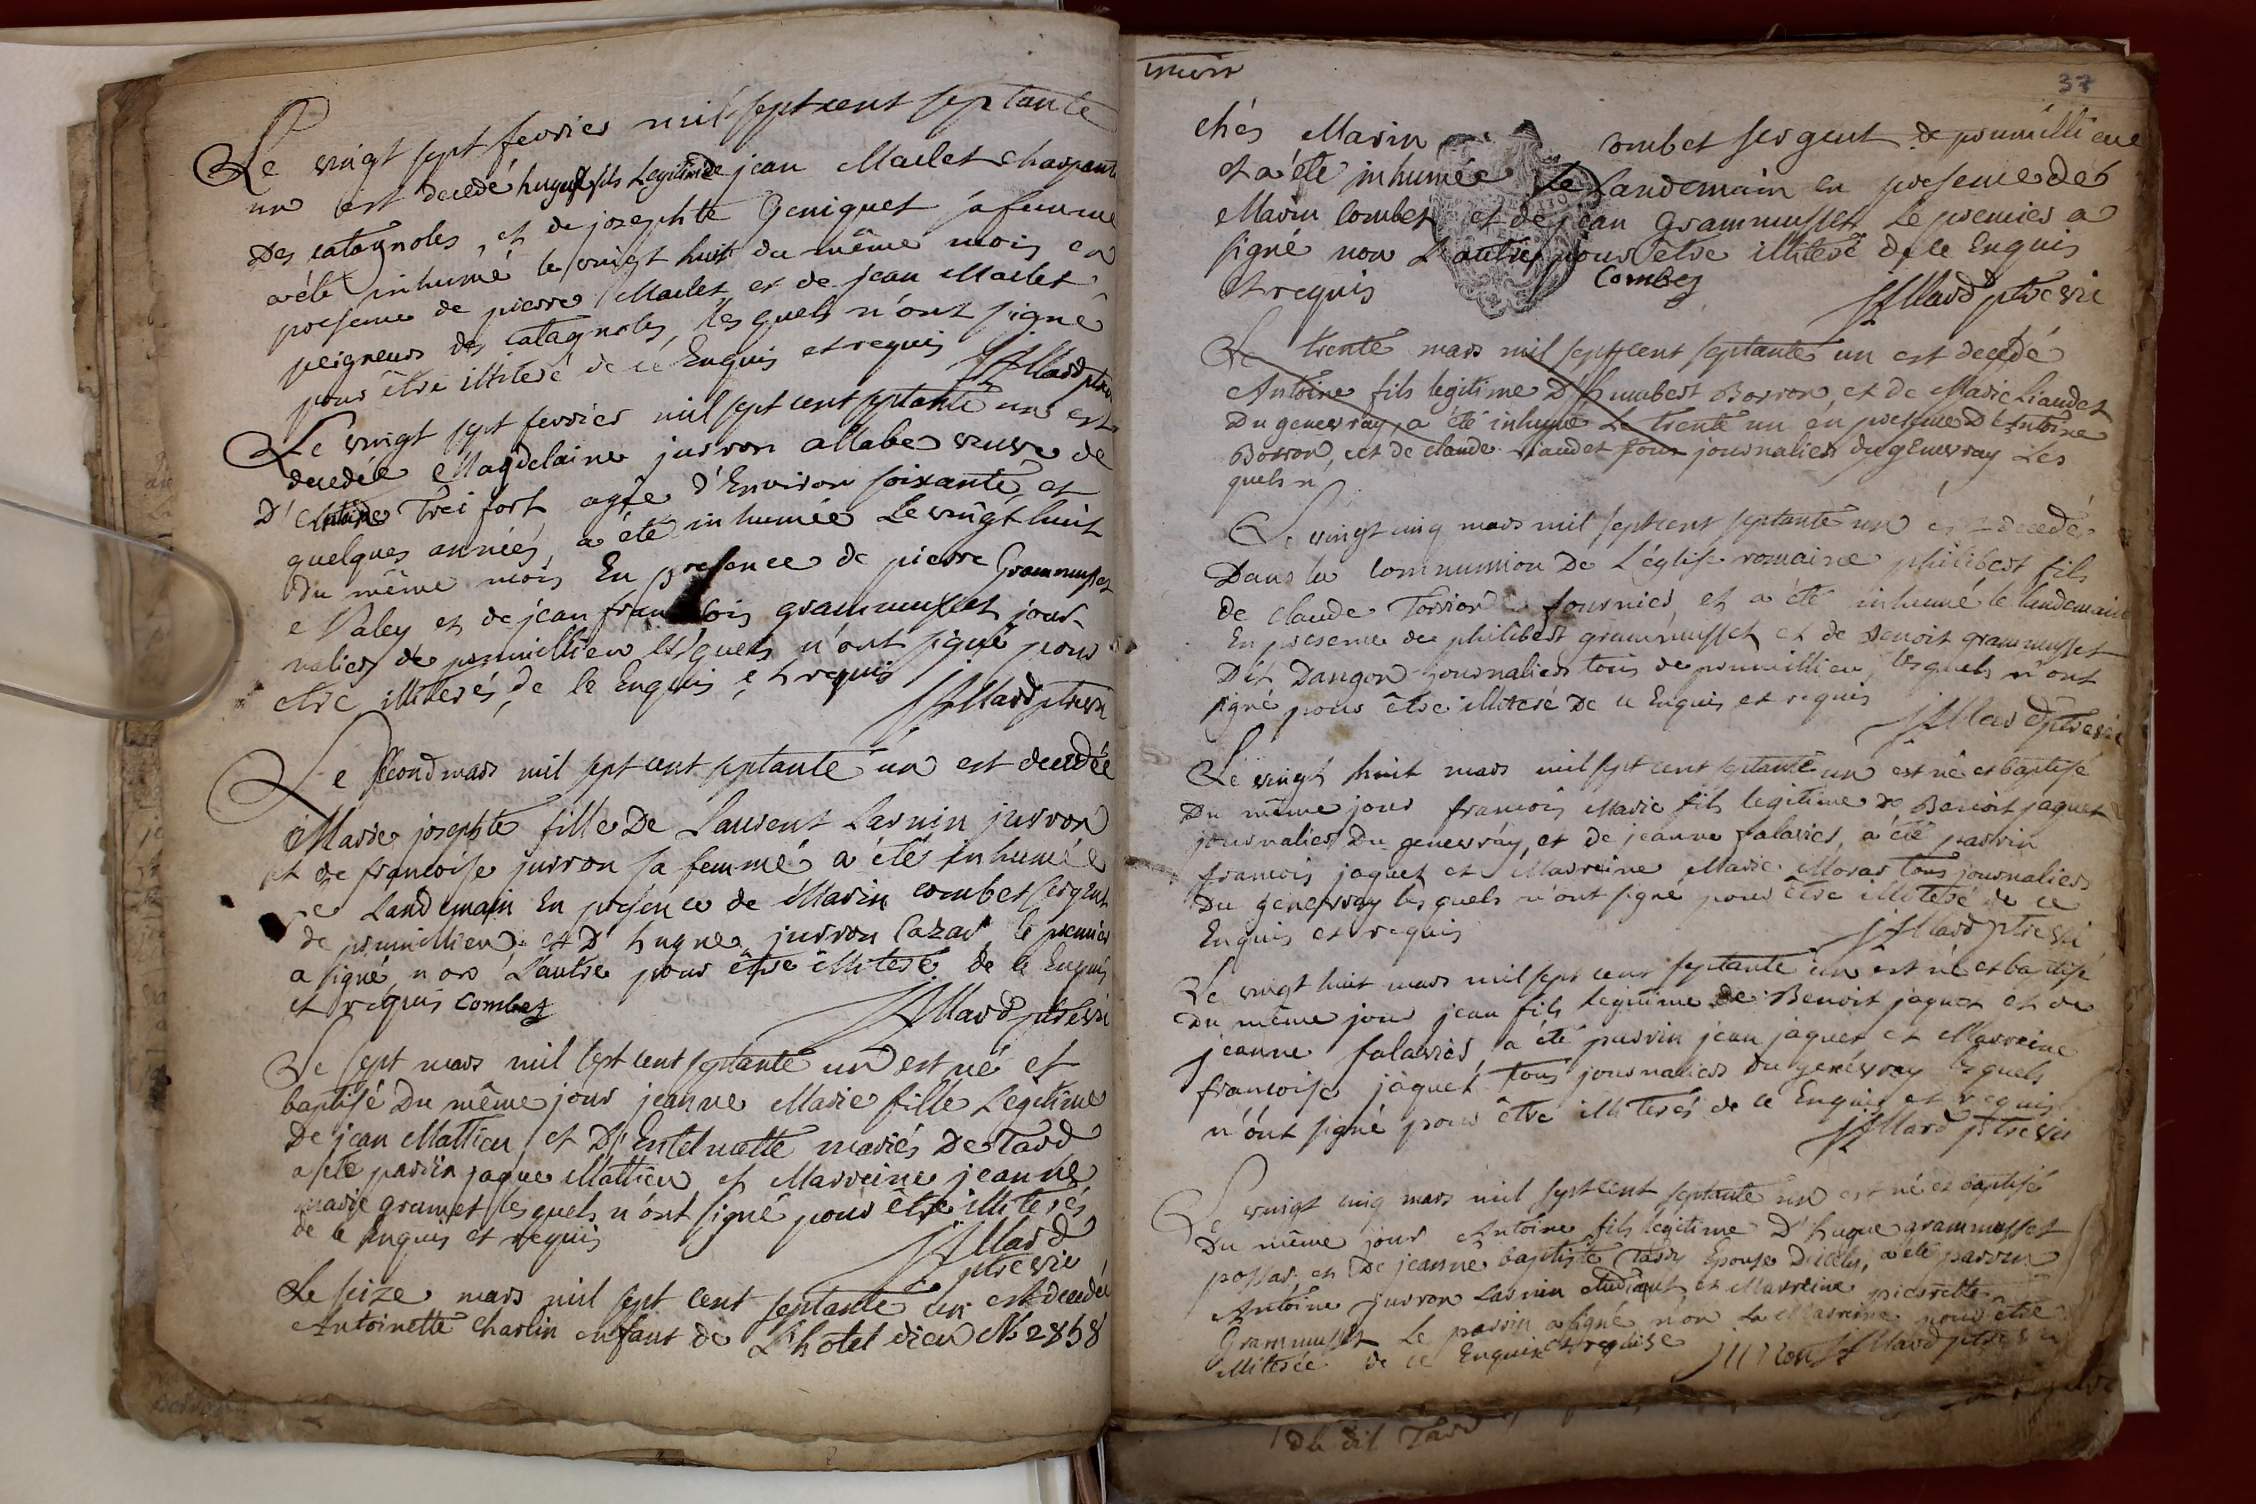 Le vingt sept fevrier mil sept cent septante
un est decedé hugue fils Legitime de jean Maclet charpanti
Des catagnoles, et de josephte Geniquet sa femme
a été inhumé le vingt huit du même mois en
presence de pierre Maclet et de jean Maclet
peigneurs des catagnoles, lesquels n'ont signé
pour être illiteré de ce Enquis et requis
JAllard ptre
Le vingt sept fevrier mil sept cent septante un est
decedée Magdelaine jurron allabe veuve de
D'Antoine Trei fort agée d'Environ soixante et
quelques années, a été inhumée Le vingt huit
du même mois En presence de pierre Grammusset
e Valey et de jean francois grammusset jour-
naliers de poumillieu lesquels n'ont signé pour
etre illiterés, de ce Enquis et requis
JAllard ptre vic
Le second mars mil sept cent septante un est decedée
Marie josephte fille De Laurent Larnin jurron
et de françoise jurron sa femme a été inhumée
le Landemain En presence de Marin combet sergent
de poumillieu et D'hugue jurron Cazar le premier
a signé non L'autre pour être illiteré de ce Enquis
et requis Combet
JAllard ptre vic
Le sept mars mil sept cent septante un est né et
baptisé Du même jour jeanne Marie fille Legitime
De jean Mattieu et D' mariés De Tard
a été parrin jaque Mattieu et Marreine jeanne
marie gramet lesquels n'ont signé pour être illiterés
de ce Enquis et requis
JAllard
ptre vic
Le seize mars mil sept cent septante un est decedée
Antoinette Charlin enfant de L'hotel dieu No 2858
37
chés Marin Combet sergent de poumillieu
et a été inhumée Le Landemain en presence de
Marin Combet et de jean Grammusset Le premier a
signé non L'autre pour être illiteré de ce Enquis
et requis Combet
JAllard ptre vic
Le trente mars mil sept cent septante un est decedé
Antoine fils legitime D'humbert Borron et de Marie Liaudet
du genevray, a été inhumé Le trente un en presence D'Antoine
Borron, et de claude Liaudet tous journaliers du genevray Les
quels n
Le vingt cinq mars mil sept cent septante un est decedé
Dans la communion De L'église romaine philibert fils
de claude Torrion fournier, et a été inhumé le landemain
En presence de philibert grammusset et de Benoit grammusset
Dit Dangon journaliers tous de poumillieu, lesquels n'ont
signé pour être illiteré De ce Enquis et requis
JAllard ptre vic
Le vingt huit mars mil sept cent septante un est né et baptisé
Du même jour francois Marie fils legitime de Benoit jaquet
journalier Du genevray, et de jeanne falavier, a été parrin
francois jaquet et Marreine Marie Moras tous journaliers
Du genevray lesquels n'ont signé pour être illiteré de ce
Enquis et requis
JAllard ptre vic
Le vingt huit mars mil sept cent septante un est né et baptisé
Du même jour jean fils legitime de Benoit jaquet et de
jeanne falavier, a été parrin jean jaquet et Marreine
francoise jaquet tous journaliers du genevray lesquels
n'ont signé pour être illiterés de ce Enquis et requis
JAllard ptre vic
Le vingt cinq mars mil sept cent septante un est né et baptisé
Du même jour Antoine fils legitime D'hugue grammusset
possar, et De jeanne baptiste Tardy Epouse Dicelui, a été parrin
Antoine jurron Larnin etudiant et Marreine pierrette
Grammusset Le parrin a signé non La Marreine pour être
illiterée de ce Enquise et requise
jurron JAllard ptre vic
Du dit Tard